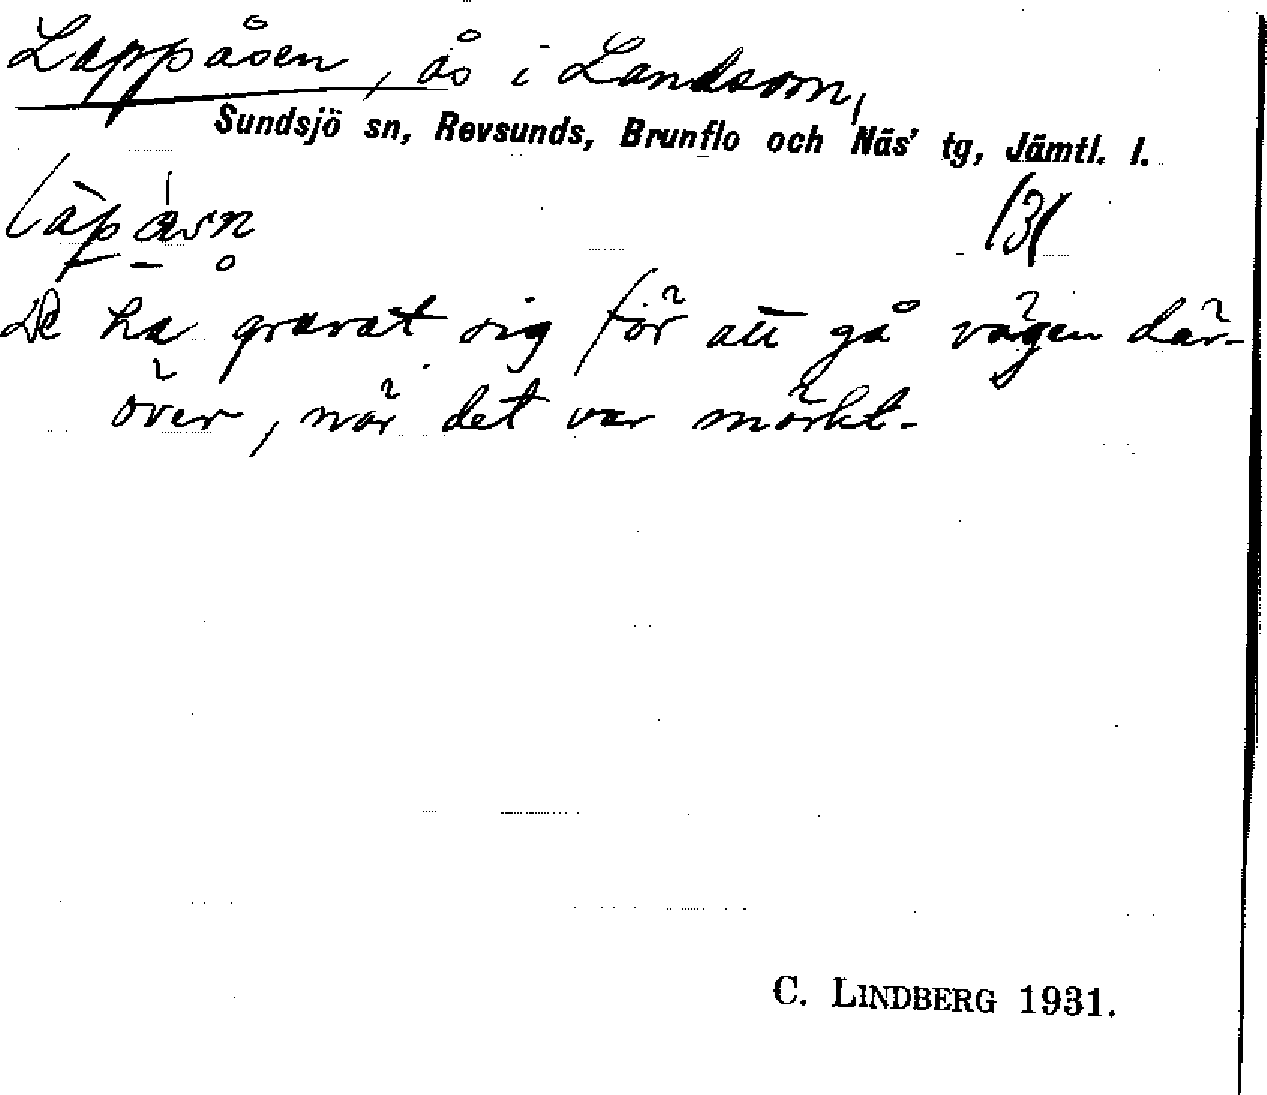 Lappåsen, ås i Landsom,
Sundsjö sn, Revsunds, Brunflo och Näs' tg, Jämtl. l.
De ha gruvat sig för att gå vägen där-
över, när det var mörkt.
C. LINDBERG 1931.